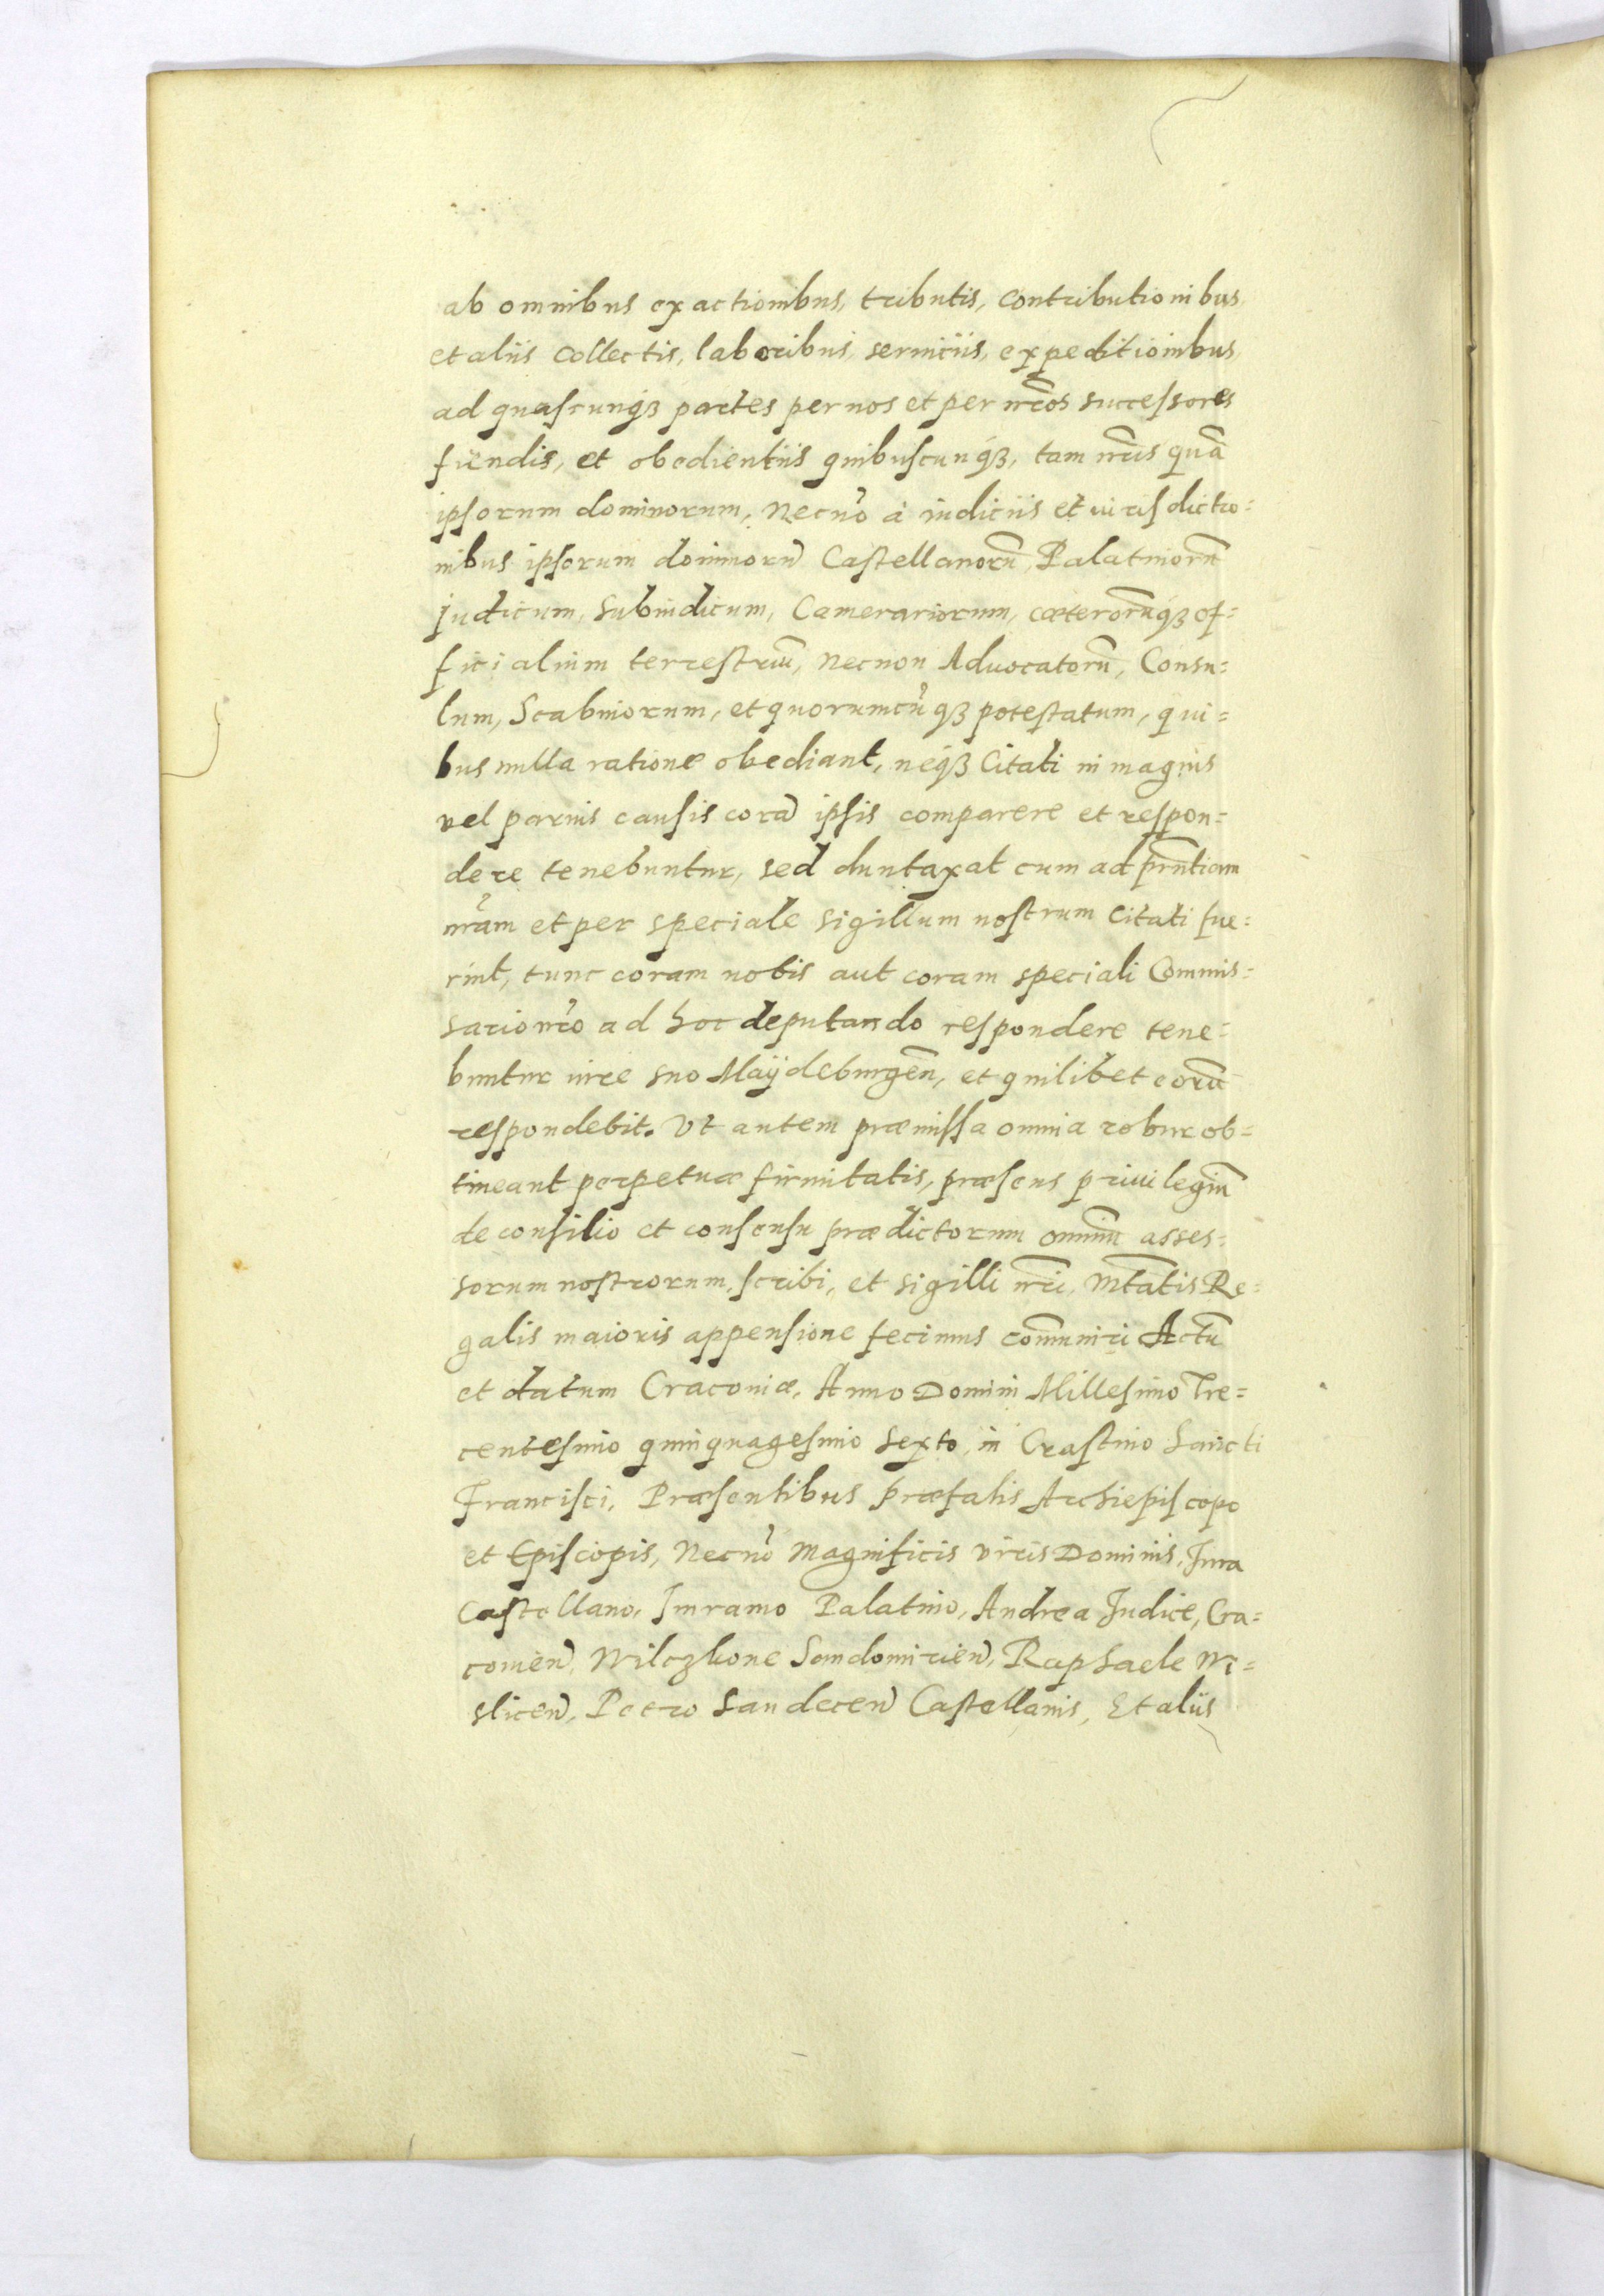 ab omnibus exactionibus, tributis, contributionibus,
et aliis collectis, laboribus, seruiciis, expeditionibus,
ad quascunq₃ partes per nos et per nr̃os successores
fiendis, et obedientiis quibuscunq₃, tam nr̃is quã
ipsorum dominorum, Necnõ à iudiciis et iurisdictio=
nibus ipsorum dominorũ Castellanorũ, Palatinorũ
Judicum, Subiudicum, Camerariorum, cæterorũq₃ of=
ficialium terrestriũ, necnon Aduocatorũ, Consu=
lum, Scabinorum, et quorumcũq₃ potestatum, qui=
bus nulla ratione obediant, neq₃ Citati in magnis
vel paruis causis corã ipsis comparere et respon=
dere tenebuntur, sed duntaxat cum ad pr̃ntiam
nr̃am et per speciale sigillum nostrum Citati fue=
rint, tunc coram nobis aut coram speciali Commis=
sario nr̃o ad hoc deputando respondere tene=
buntur iure suo Maÿdeburgeñ, et quilibet eorũ
respondebit. Vt autem præmissa omnia robur ob=
tineant perpetuæ firmitatis, præsens priuilegiũ
de consilio et consensu prædictorum omniũ asses=
sorum nostrorum scribi, et sigilli nr̃i, Mtãtis Re=
galis maioris appensione fecimus com̃uniri Actũ
et datum Cracouiæ, Anno Domini Millesimo Tre=
centesimo quinquagesimo Sexto, in Crastino Sancti
Francisci, Præsentibus præfatis Archiepiscopo
et Episcopis, Necnõ Magnificis viris Dominis, Jura
Castellano, Imramo Palatino, Andrea Judice, Cra=
couieñ, Wilczkone Sandomirieñ, Raphaele Wi=
sliceñ, Petro Sandeceñ Castellanis, Et aliis